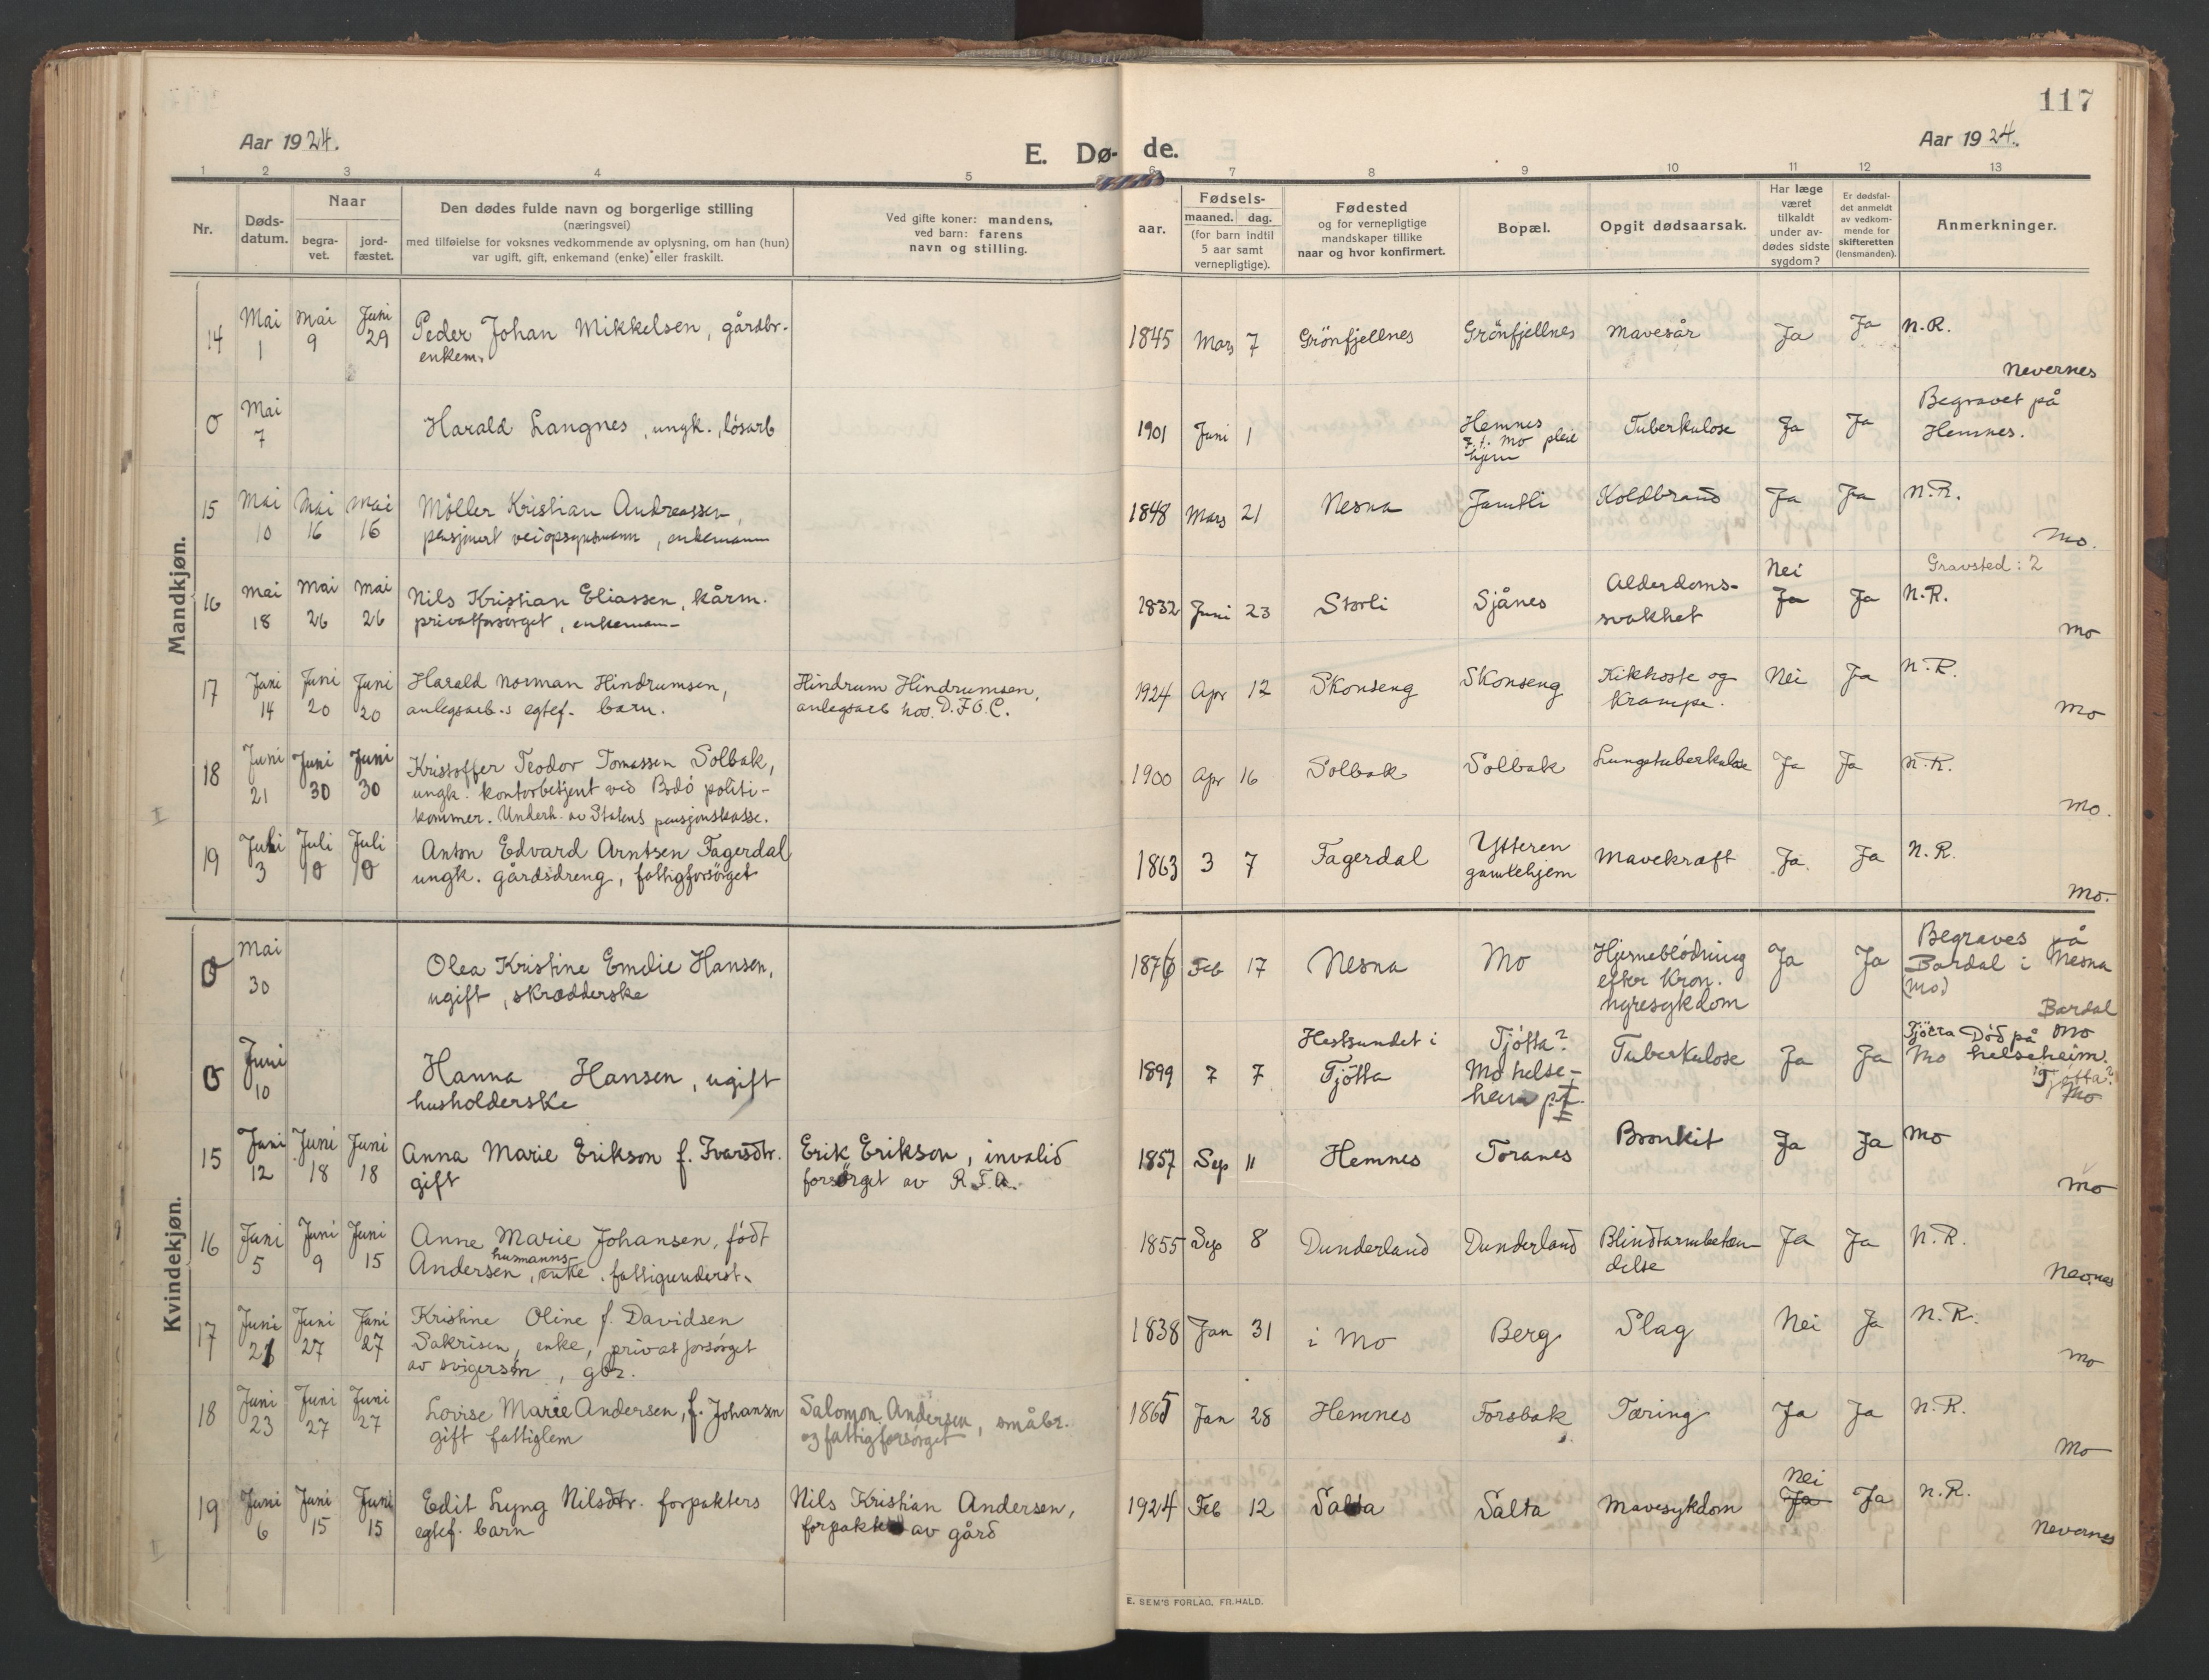 117
Aar 1924.
E. Dø- de.
Aar 1924.
1 2 3 4 5 6 7 8 9 10 11 12 13
Nr.
Døds-
datum.
Naar
begra-
vet.
jord-
fæstet.
Den dødes fulde navn og borgerlige stilling
(næringsvei)
med tilføielse for voksnes vedkommende av oplysning, om han (hun)
var ugift, gift, enkemand (enke) eller fraskilt.
Ved gifte koner: mandens,
ved barn: farens
navn og stilling.
Fødsels-
aar.
maaned. dag.
(for barn indtil
5 aar samt
vernepligtige).
Fødested
og for vernepligtige
mandskaper tillike
naar og hvor konfirmert.
Bopæl.
Opgit dødsaarsak.
Har læge
været
tilkaldt
under av-
dødes sidste
sygdom?
Er dødsfal-
det anmeldt
av vedkom-
mende for
skifteretten
(lensmanden).
Anmerkninger.
Mandkjøn.
14 Mai 1 Mai 9 Juni 29 Peder Johan Mikkelsen, gårdbr.
enkem.
1845 Mars 7 Grönfjellnes Grönfjellnes Mavesår Ja Ja N.R.
Nevernes
0 Mai 7 Harald Langnes, ungk., lösarb
1901 Juni 1 Hemnes
p.t. Mo pleie
hjem
Tuberkulose Ja Ja Begravet på
Hemnes.
15 Mai 10 Mai 16 Mai 16 Möller Kristian Andreassen,
pensjonert veiopsynsmann, enkemann
1848 Mars 21 Nesna Jamtli Koldbrand Ja Ja N.R.
Mo.
Gravsted: 2
16 Mai 18 Mai 26 Mai 26 Nils Kristian Eliassen, kårm.
privatforsörget, enkemann
1832 Juni 23 Storli Sjånes Alderdoms-
svakhet
Nei
Ja Ja N.R.
Mo
17 Juni 14 Juni 20 Juni 20 Harald Norman Hindrumsen,
anlegsarb.s egtef. barn.
Hindrum Hindrumsen,
anlegsarb hos D.I.O.C.
1924 Apr 12 Skonseng Skonseng Kikhoste og
krampe.
Nei Ja N.R.
Mo
18 Juni 21 Juni 30 Juni 30 Kristoffer Teodor Tomassen Solbak,
ungk. kontorbetjent ved Bodö politi-
kammer. Underh. av Statens pensjonskasse.
1900 Apr 16 Solbak Solbak Lungetuberkulose Ja Ja N.R.
Mo.
19 Juli 3 Juli 10 Juli 10 Anton Edvard Arntsen Fagerdal
ungk. gårdsdreng, fattigforsörget
1863 3 7 Fagerdal Ytteren
gamlehjem
Mavekræft Ja. Ja N.R.
Mo.
Kvindekjøn.
0 Mai 30 Olea Kristine Emelie Hansen,
ugift, skrædderske
1876 Feb 17 Nesna Mo Hjerneblödning
efter kron.
nyresykdom
Ja Ja Begraves på
Bardal i Nesna
(Mo)
Bardal
0 Juni 10 Hanna Hansen, ugift
husholderske
1899 7 7 Hestsundet i
Tjötta
Tjötta?
Mo helse-
heim p.t.
Tuberkulose Ja Ja Tjötta Död på Mo
Mo helseheim.
Tjötta?
Mo
15 Juni 12 Juni 18 Juni 18 Anna Marie Erikson f. Ivarsdtr.
gift
Erik Erikson, invalid
forsörget av R.T.A.
1857 Sep 11 Hemnes Toranes Bronkit Ja Ja Mo
Mo
16 Juni 5 Juni 9 Juni 15 Anne Marie Johansen, født
Andersen, husmanns-
enke. fattigunderst.
1855 Sep 8 Dunderland Dunderland Blindtarmbeten-
delse
Ja Ja N.R.
17 Juni 21 Juni 27 Juni 27 Kristine Oline f. Davidsen
Sakrisen, enke, privat forsörget
av svigersön, gbr.
1838 Jan 31 i Mo Berg Slag Nei Ja N.R.
Mo
18 Juni 23 Juni 27 Juni 27 Lovise Marie Andersen, f. Johansen
gift fattiglem
Salomon Andersen, småbr.
og fattigforsörget
1865 Jan 28 Hemnes Forsbak Tæring Ja Ja N.R.
Mo
19 Juni 6 Juni 15 Juni 15 Edit Lyng Nilsdtr. forpakters
egtef. barn
Nils Kristian Andersen,
forpakter av gård
1924 Feb 12 Salta Salta Mavesykdom Nei
Ja Ja N.R.
Nevernes
E. SEM'S FORLAG, FR.HALD.